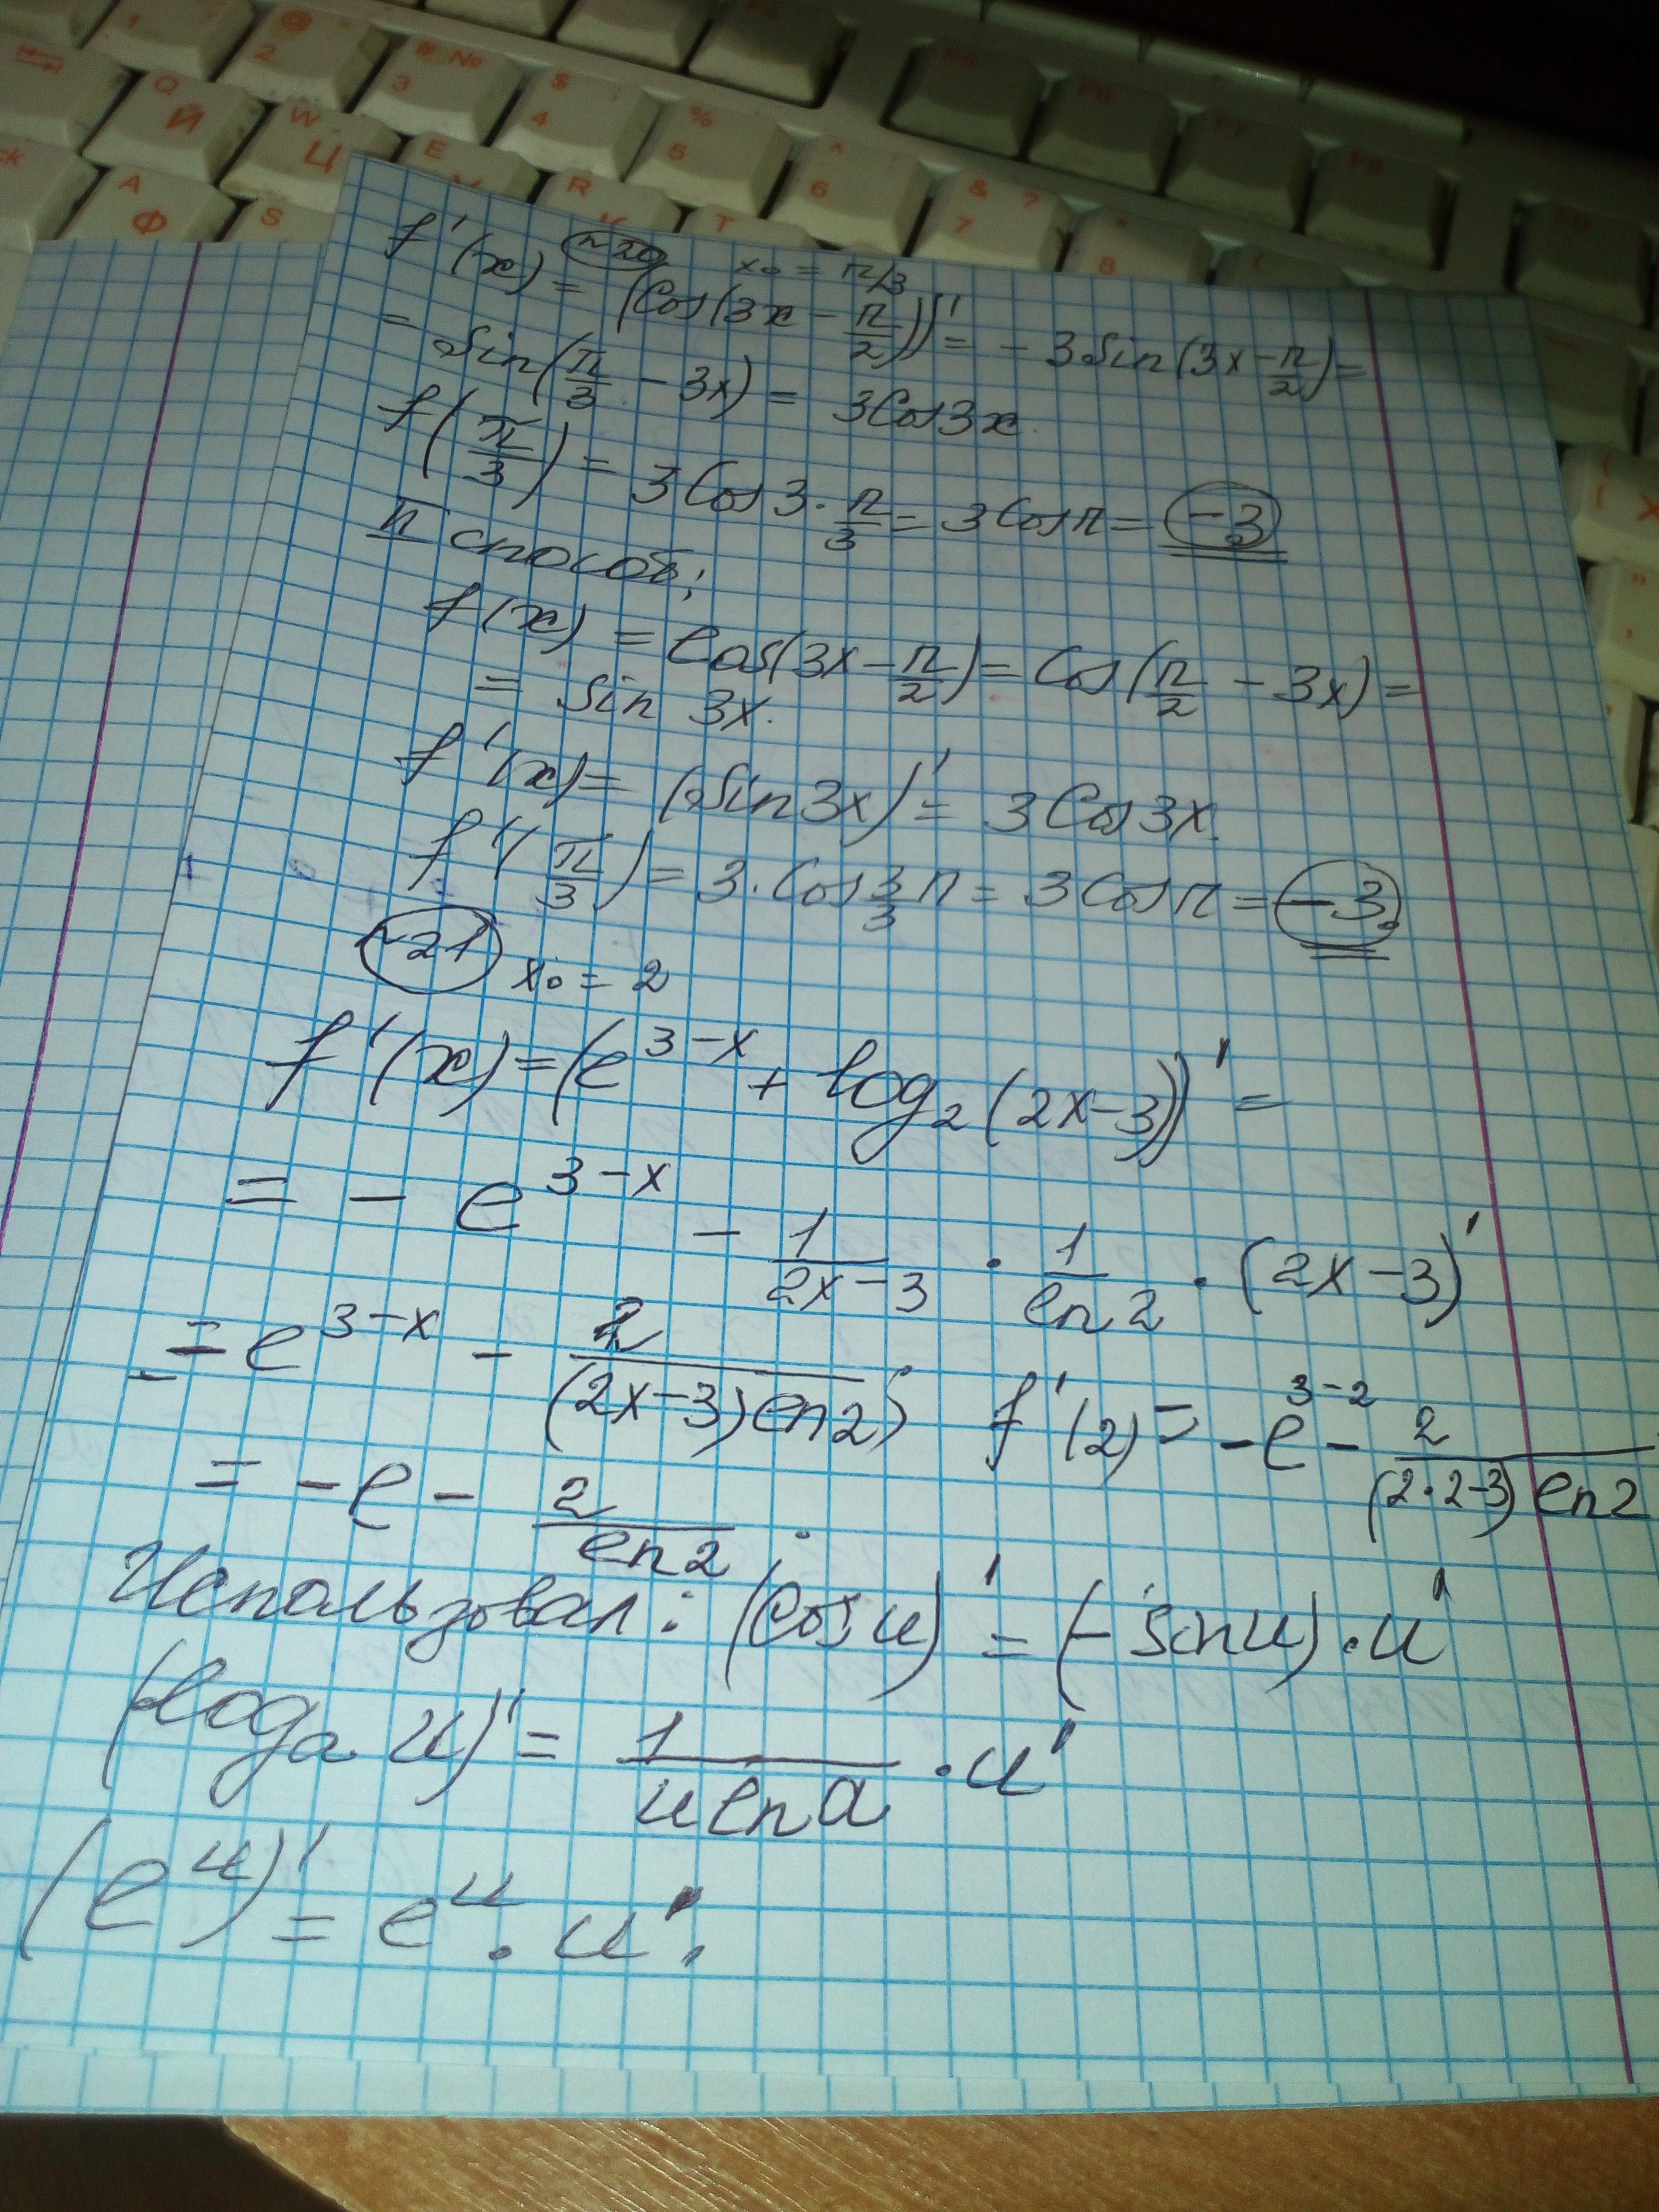 1 @ 2 # № 3 $ ; 4 % 5 ^ : 6 & ? 7 * 8 (
F4 F5 F6 F7 F8 F9
Q Й W Ц E R T
A Ф S
№20 x₀ = π/3
f'(x) = (Cos(3x − π/2))' = − 3Sin(3x − π/2) =
= Sin(π/3 − 3x) = 3Cos3x.
f(π/3) = 3Cos3·π/3 = 3Cosπ = −3
II способ;
f(x) = Cos(3x − π/2) = Cos(π/2 − 3x) =
= Sin 3x.
f'(x) = (Sin3x)' = 3Cos3x.
f'(π/3) = 3·Cos3/3π = 3Cosπ = −3.
№21 x₀ = 2
f'(x) = (e^(3−x) + log₂(2x−3))' =
= − e^(3−x) − 1/(2x−3) · 1/ln2 · (2x−3)'
= −e^(3−x) − 2/((2x−3)ln2); f'(2) = −e^(3−2) − 2/((2·2−3)ln2)
= −e − 2/ln2.
Использовал: (Cosu)' = (−sinu)·u'
(logₐ u)' = 1/(u ln a) · u'
(e^u)' = e^u · u'.